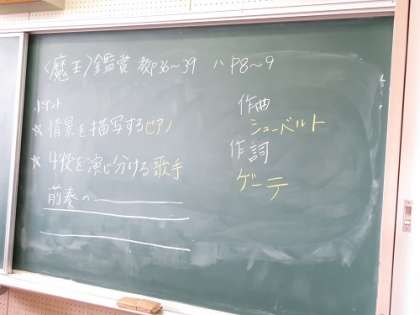 〈魔王〉鑑賞 教P36〜39 ハP8〜9
ポイント
☆情景を描写するピアノ
☆4役を演じ分ける歌手
前奏の
作曲
シューベルト
作詞
ゲーテ